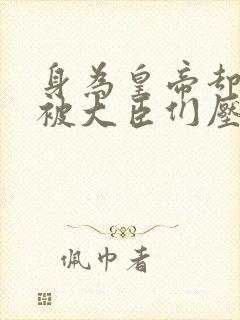 身為皇帝却
被大臣们壓
佩巾者